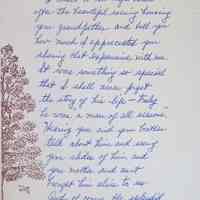 after the beautiful evening honoring
your grandfather and tell you
how much I appreciated you
sharing that experience with me.
It was something so special
that I shall never forget
the story of his life - Truly
he was a man of all seasons.
Hearing you and your brother
talk about him and seeing
you slides of him and
your mother and aunt
brought him close to us